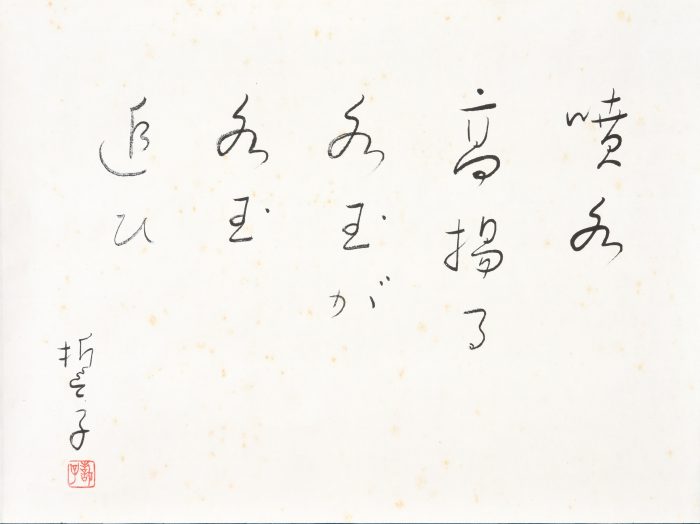 噴水
高揚る
水玉が
水玉
追ひ
哲子